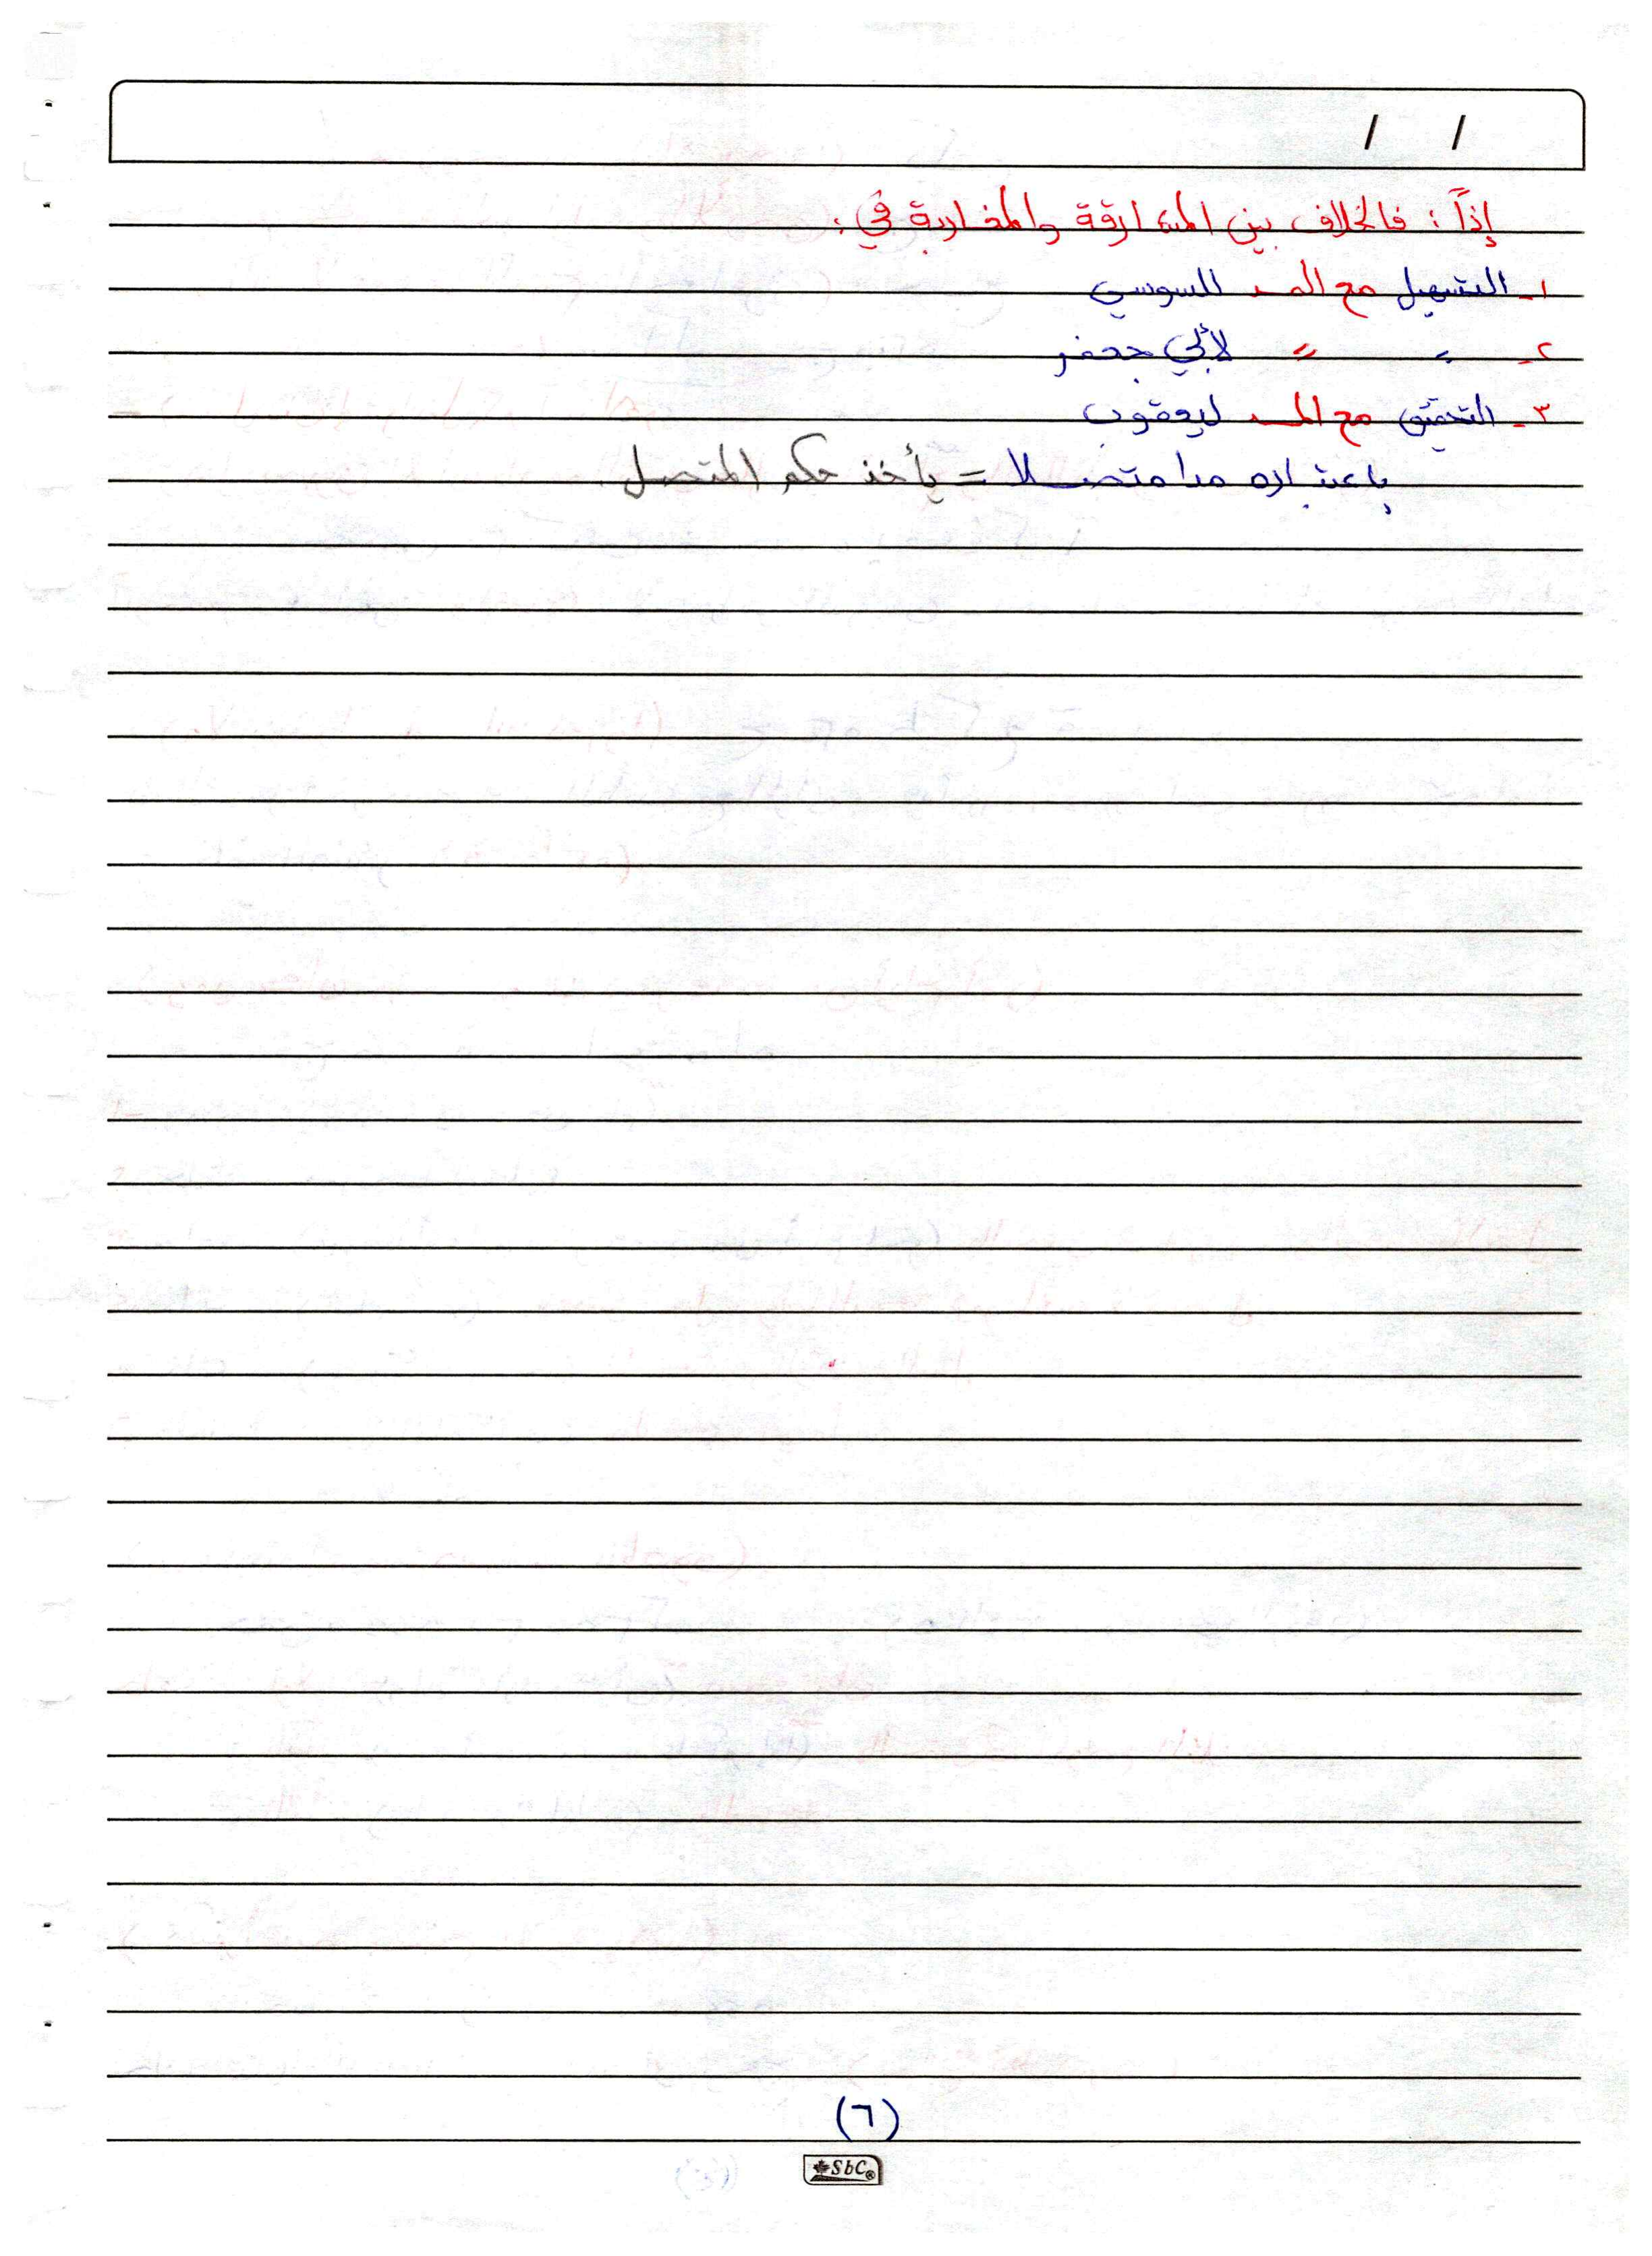 / /
إذاً : فالخلاف بين المشارقة والمغاربة في :
١- التسهيل مع المد للسوسي
٢- 〃 〃 لأبي جعفر
٣- التحقيق مع المد ليعقوب
باعتباره مدا متصلا = يأخذ حكم المتصل
(٦)
SbC®